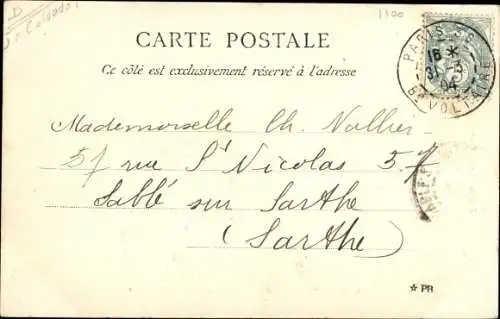 D
Calvados
1100
CARTE POSTALE
Ce côté est exclusivement réservé à l'adresse
PARIS 35
16 *
31 -3
04
Bd VOLTAIRE
Mademoiselle Ch. Vallier
57 rue St Nicolas 57
Sablé sur Sarthe
(Sarthe)
* PR